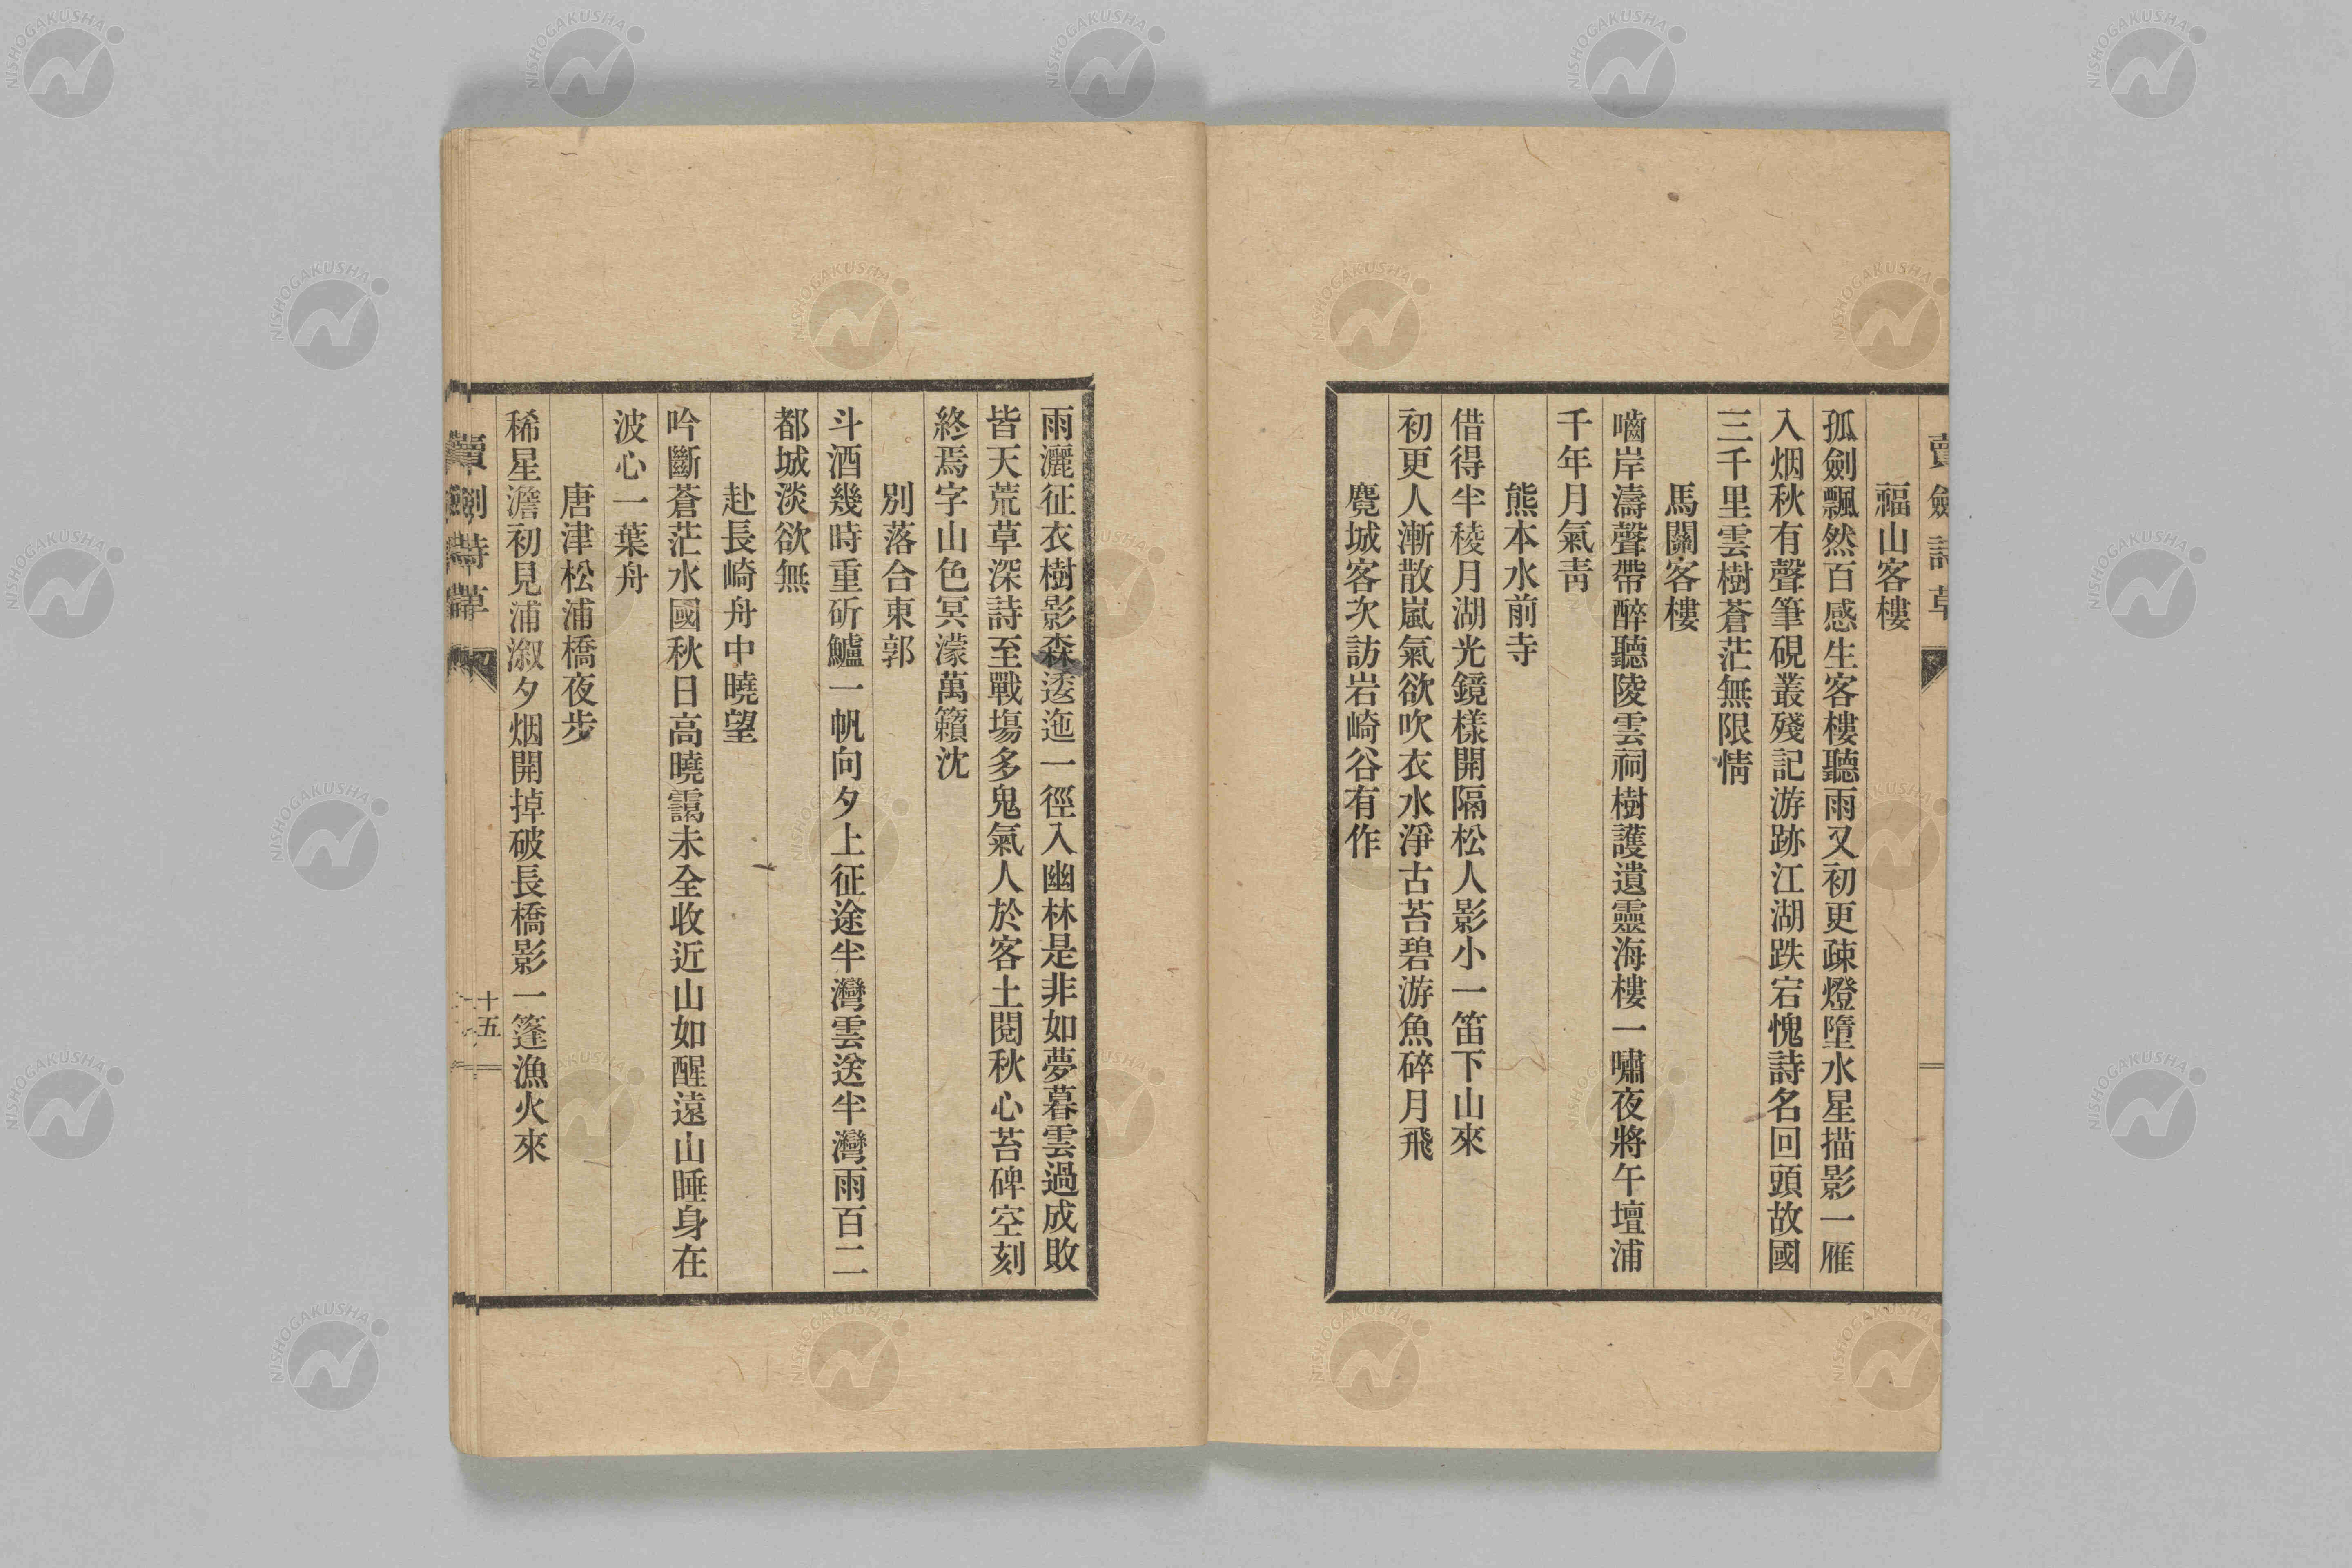 賣劍詩草
福山客樓
孤劍飄然百感生客樓聽雨又初更疎燈墮水星描影一雁
入烟秋有聲筆硯叢殘記游跡江湖跌宕愧詩名回頭故國
三千里雲樹蒼茫無限情
馬關客樓
嚙岸濤聲帶醉聽陵雲祠樹護遺靈海樓一嘯夜將午壇浦
千年月氣靑
熊本水前寺
借得半稜月湖光鏡樣開隔松人影小一笛下山來
初更人漸散嵐氣欲吹衣水淨古苔碧游魚碎月飛
麑城客次訪岩崎谷有作
雨灑征衣樹影森逶迤一徑入幽林是非如夢暮雲過成敗
皆天荒草深詩至戰塲多鬼氣人於客土閱秋心苔碑空刻
終焉字山色冥濛萬籟沈
別落合東郭
斗酒幾時重斫鱸一帆向夕上征途半灣雲送半灣雨百二
都城淡欲無
赴長崎舟中曉望
吟斷蒼茫水國秋日高曉靄未全收近山如醒遠山睡身在
波心一葉舟
唐津松浦橋夜步
稀星澹初見浦溆夕烟開掉破長橋影一篷漁火來
賣劍詩草
十五
NISHOGAKUSHA